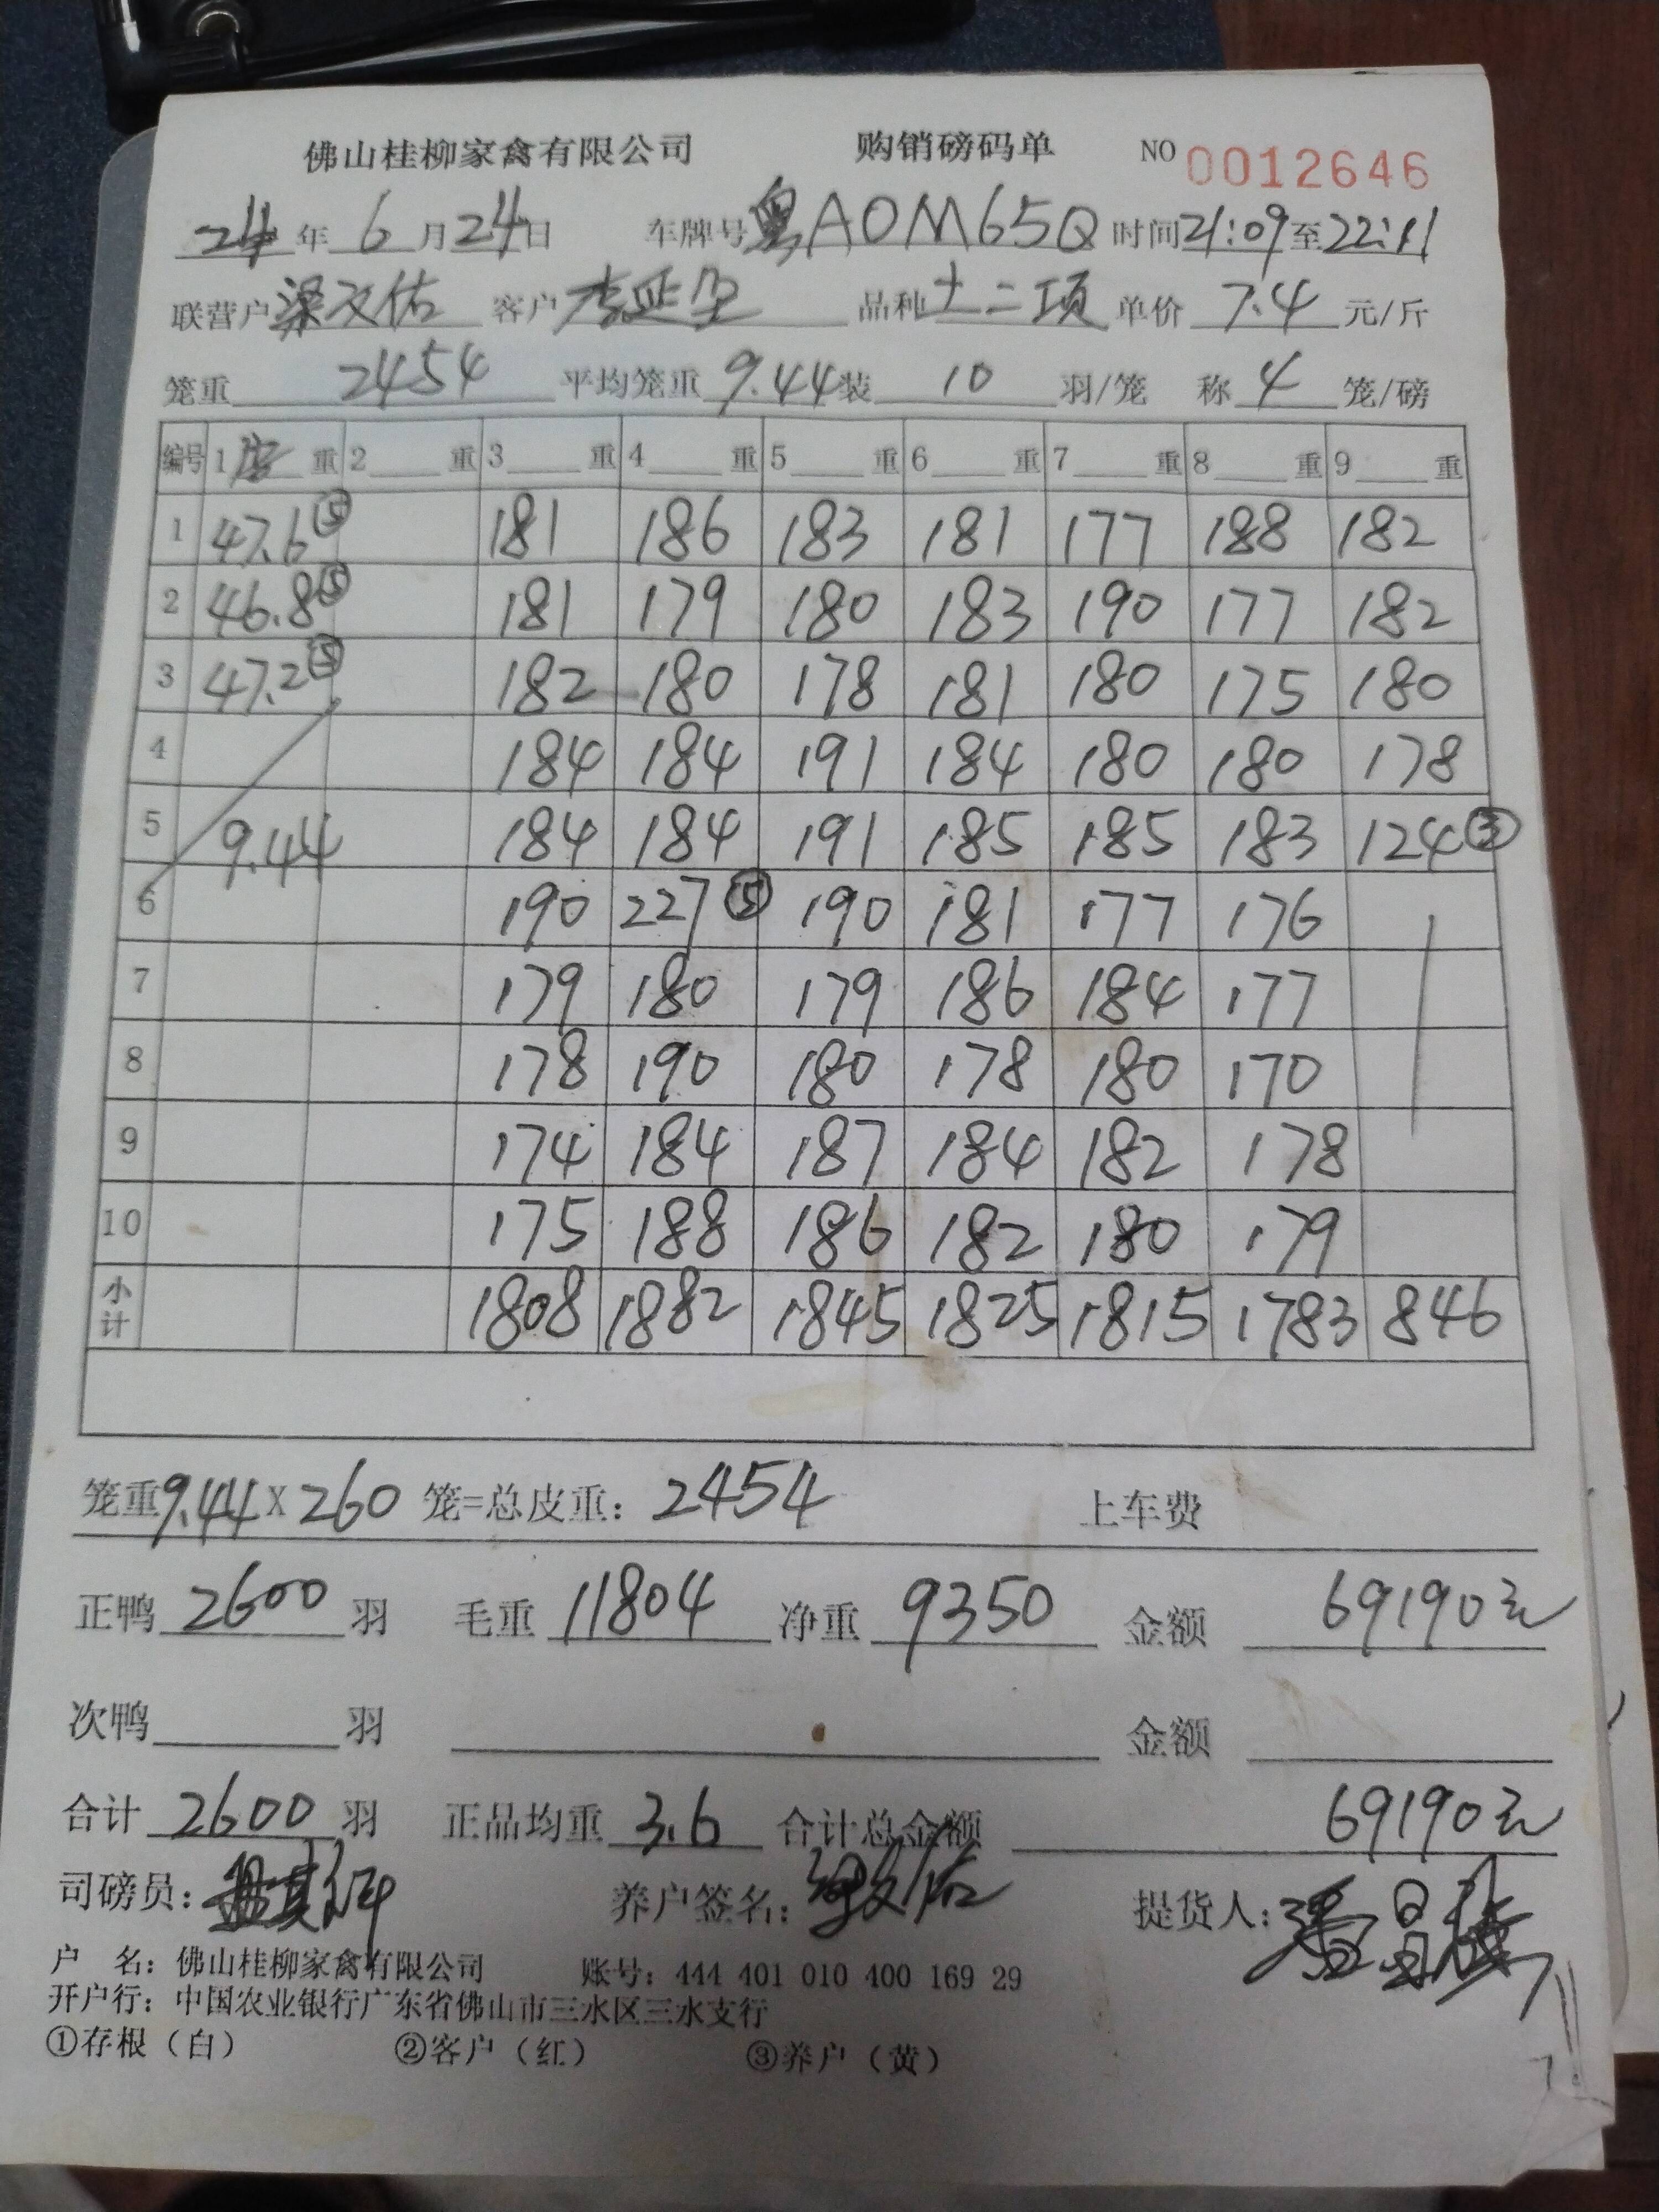 佛山桂柳家禽有限公司 购销磅码单 NO 0012646
24年6月24日 车牌号粤A0M65Q 时间21:09至22:11
联营户梁文佑 客户李延 品种十二项 单价7.4元/斤
笼重2454平均笼重9.44装10羽/笼 称4笼/磅
编号 1空重 2重 3重 4重 5重 6重 7重 8重 9重
1 47.6⑤ 181 186 183 181 177 188 182
2 46.8⑤ 181 179 180 183 190 177 182
3 47.2⑤ 182 180 178 181 180 175 180
4 184 184 191 184 180 180 178
5 9.44 184 184 191 185 185 183 124③
6 190 227⑤ 190 181 177 176
7 179 180 179 186 184 177
8 178 190 180 178 180 170
9 174 184 187 184 182 178
10 175 188 186 182 180 179
小计 1808 1882 1845 1825 1815 1783 846
笼重9.44X260笼=总皮重：2454 上车费
正鸭2600羽 毛重11804 净重9350 金额69190元
次鸭羽 金额
合计2600羽 正品均重3.6 合计总金额69190元
司磅员： 养户签名：梁文佑 提货人：
户 名：佛山桂柳家禽有限公司 账号：444 401 010 400 169 29
开户行：中国农业银行广东省佛山市三水区三水支行
①存根（白） ②客户（红） ③养户（黄）